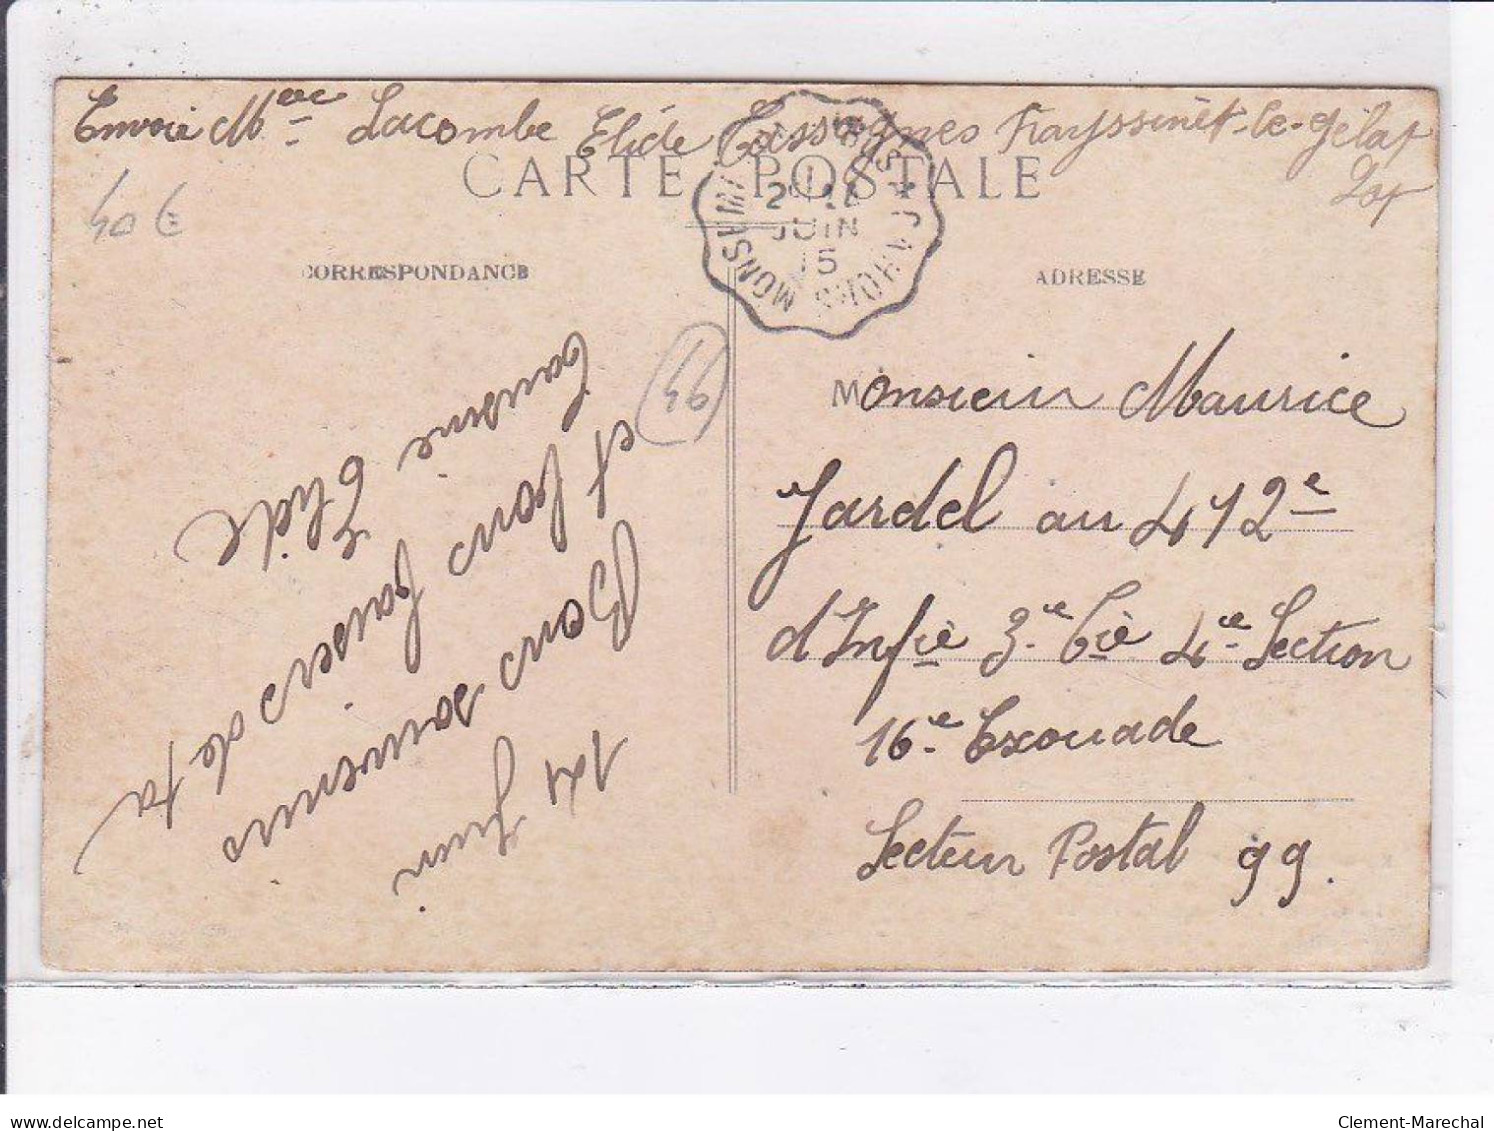 Envoie Mme Lacombe Elide Cassagnes Frayssinet-le-Gélat
Lot
CARTE POSTALE
40 €
MONSEMPRON-LIBOS A CAHORS
14
JUIN
15
CORRESPONDANCE
ADRESSE
46
14 Juin
Bons souvenirs
et bons baisers de ta
Cousine
Elide
Monsieur Maurice
Jardel au 412e
d'Infie 3e Cie 4e Section
16e Excouade
Secteur Postal 99.
delcampe.net
Clement-Marechal